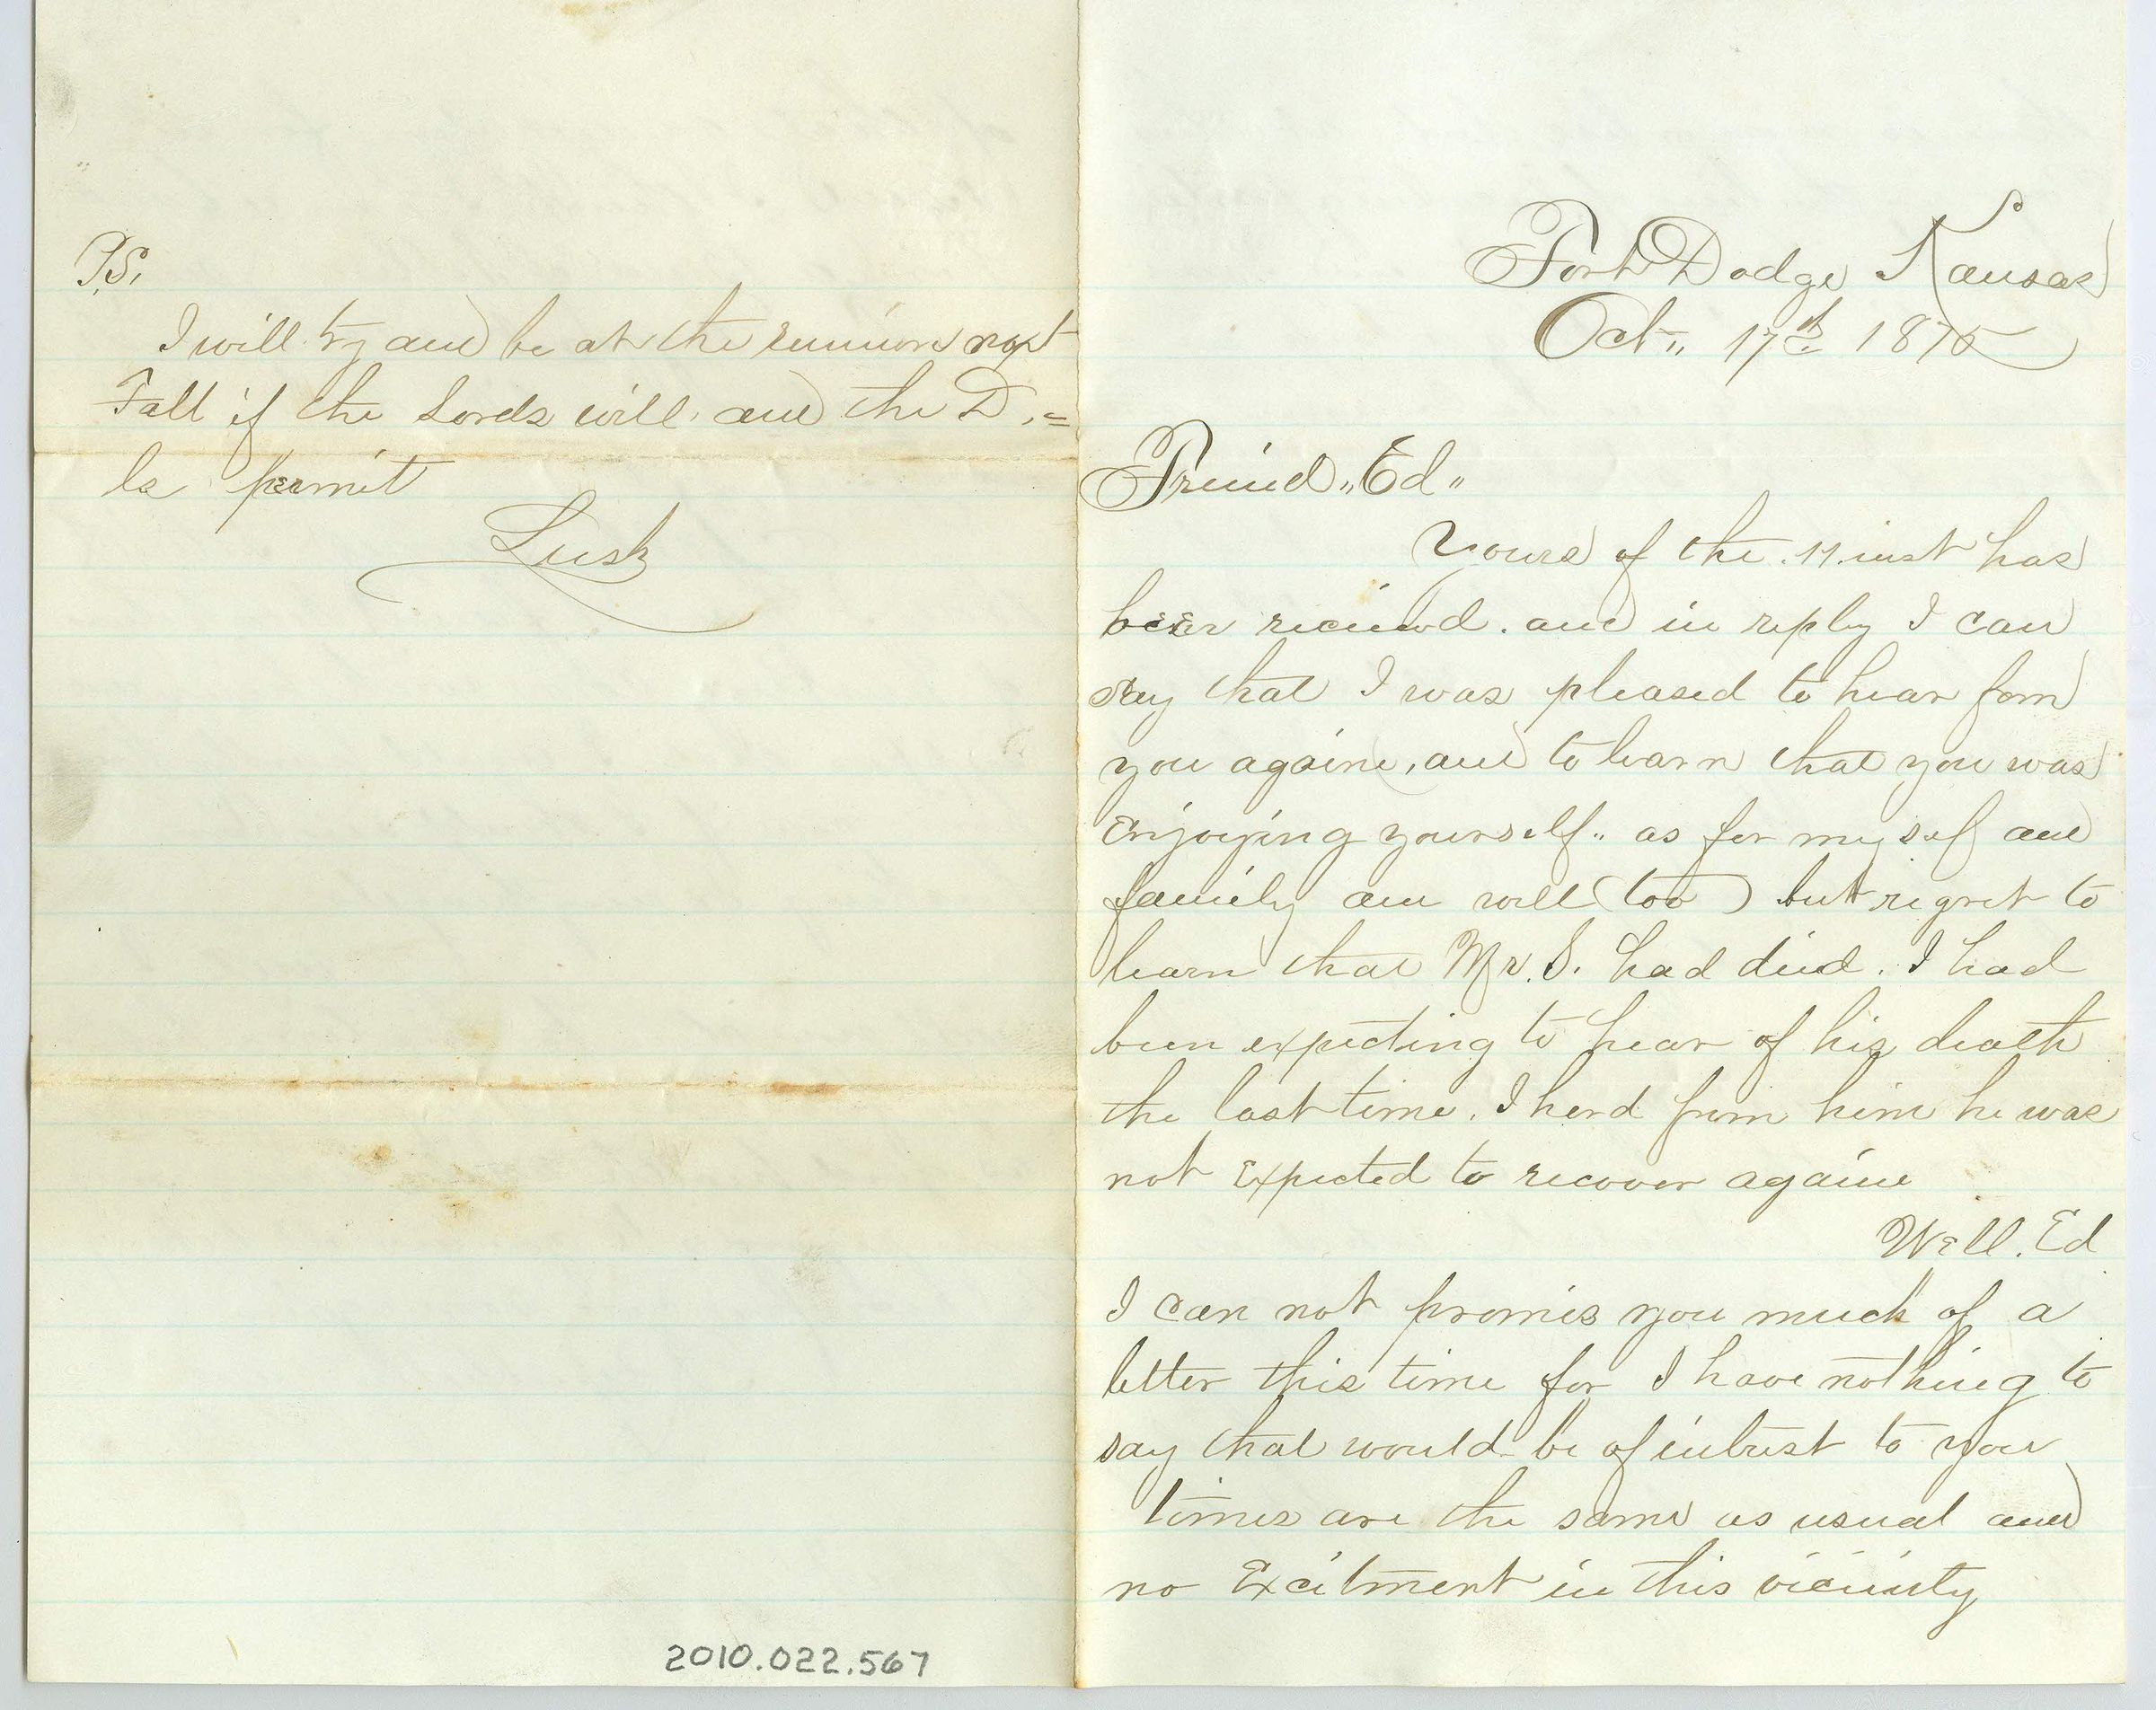 Fort Dodge Kansas
Oct,, 17th 1875
Freind "Ed"
Yours of the .11. inst has
been recieved. and in reply I can
say that I was pleased to hear form
you againe, and to learn that you was
Enjoying yourself.. as for my self and
family am well (too) but regret to
learn that Mr. S. had died. I had
been expecting to hear of his death
the last time. I herd from him he was
not Expected to recover againe
Well. Ed
I can not promis you much of a
letter this time for I have nothing to
say that would be of intrest to you
times are the same as usual and
no Excitment in this vicinity
P.S.
I will try and be at the reunion next
Fall if the Lords will and the D.=
ls permit
Lusk
2010.022.567